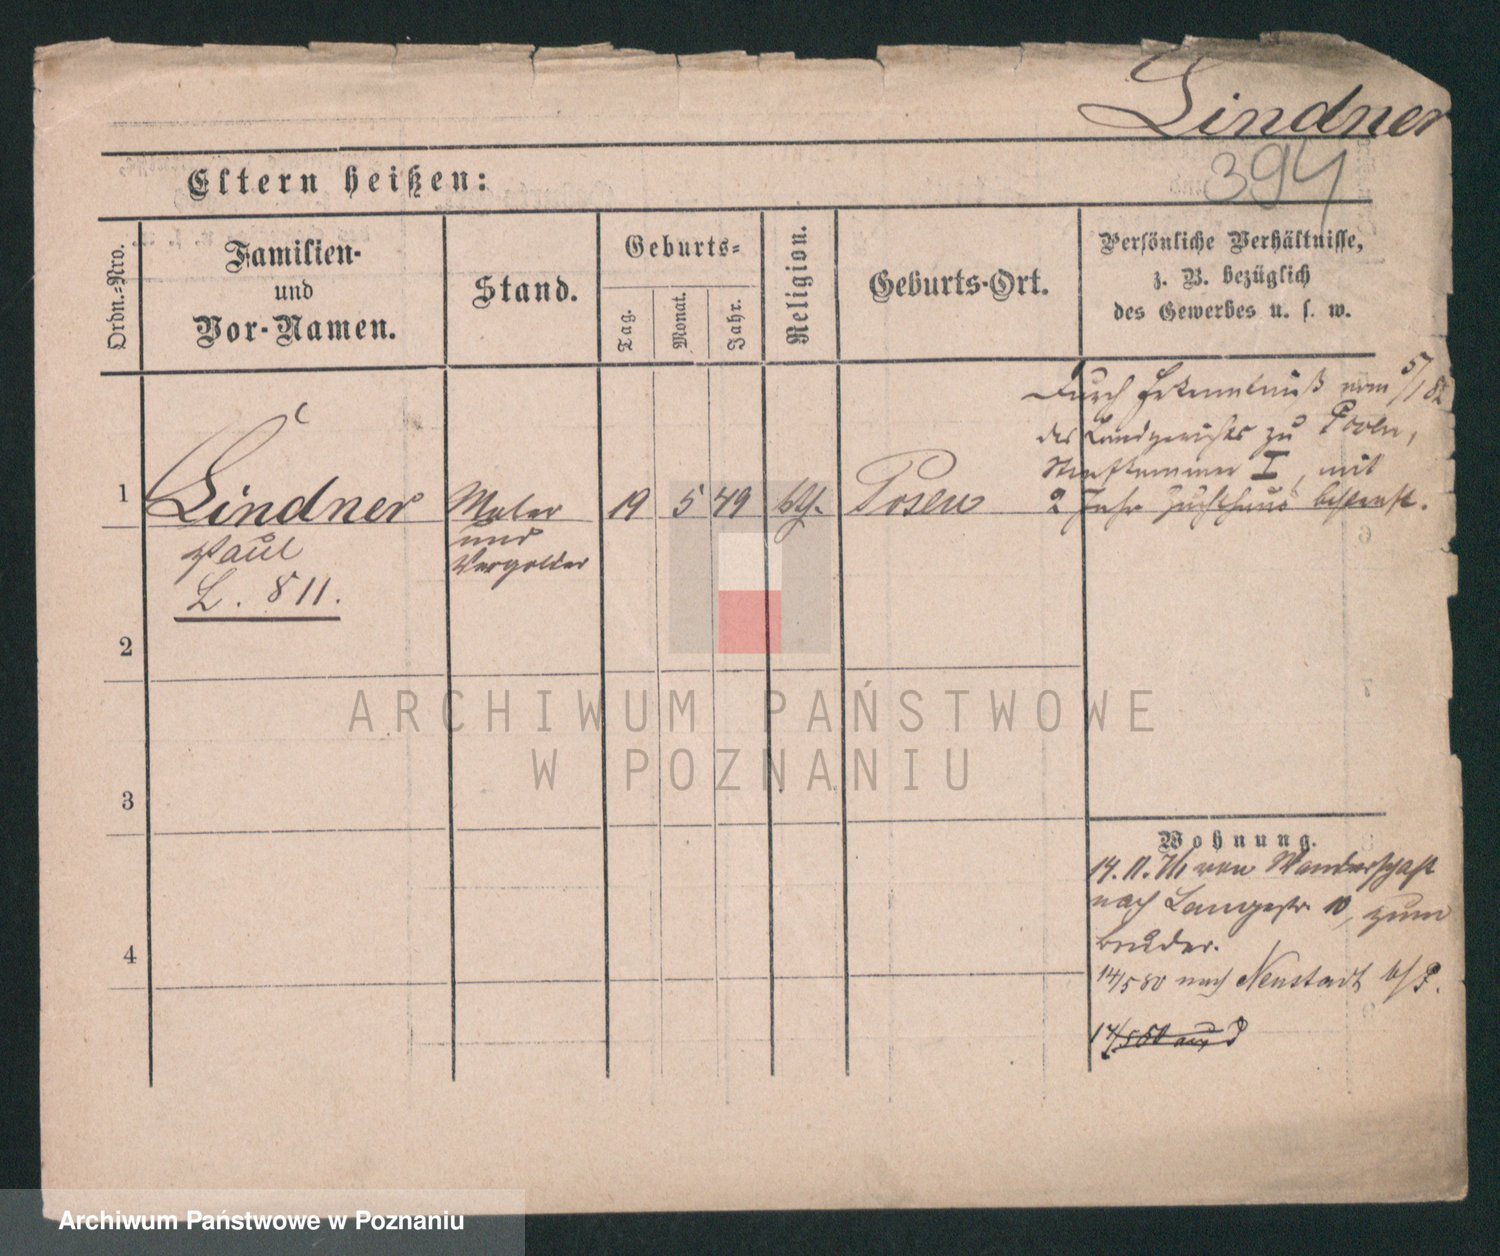 Lindner
394
Eltern heißen:
Ordn.-Nro.
Familien-
und
Vor-Namen.
Stand.
Geburts-
Tag.
Monat.
Jahr.
Religion.
Geburts-Ort.
Persönliche Verhältnisse,
z. B. bezüglich
des Gewerbes u. s. w.
Durch Erkenntniß vom 5/1 82
des Landgerichts zu Posen,
Strafkammer I, mit
2 Jahr Zuchthaus bestraft.
1
Lindner
Paul
L. 811.
Maler
und
Vergolder
19
5
49
Posen
2
3
4
Wohnung.
14. 11. von Wanderschaft
nach Langestr. 10, zum
Bruder.
14/5 80 nach Neustadt b/P.
14/5 80
ARCHIWUM PAŃSTWOWE
W POZNANIU
Archiwum Państwowe w Poznaniu